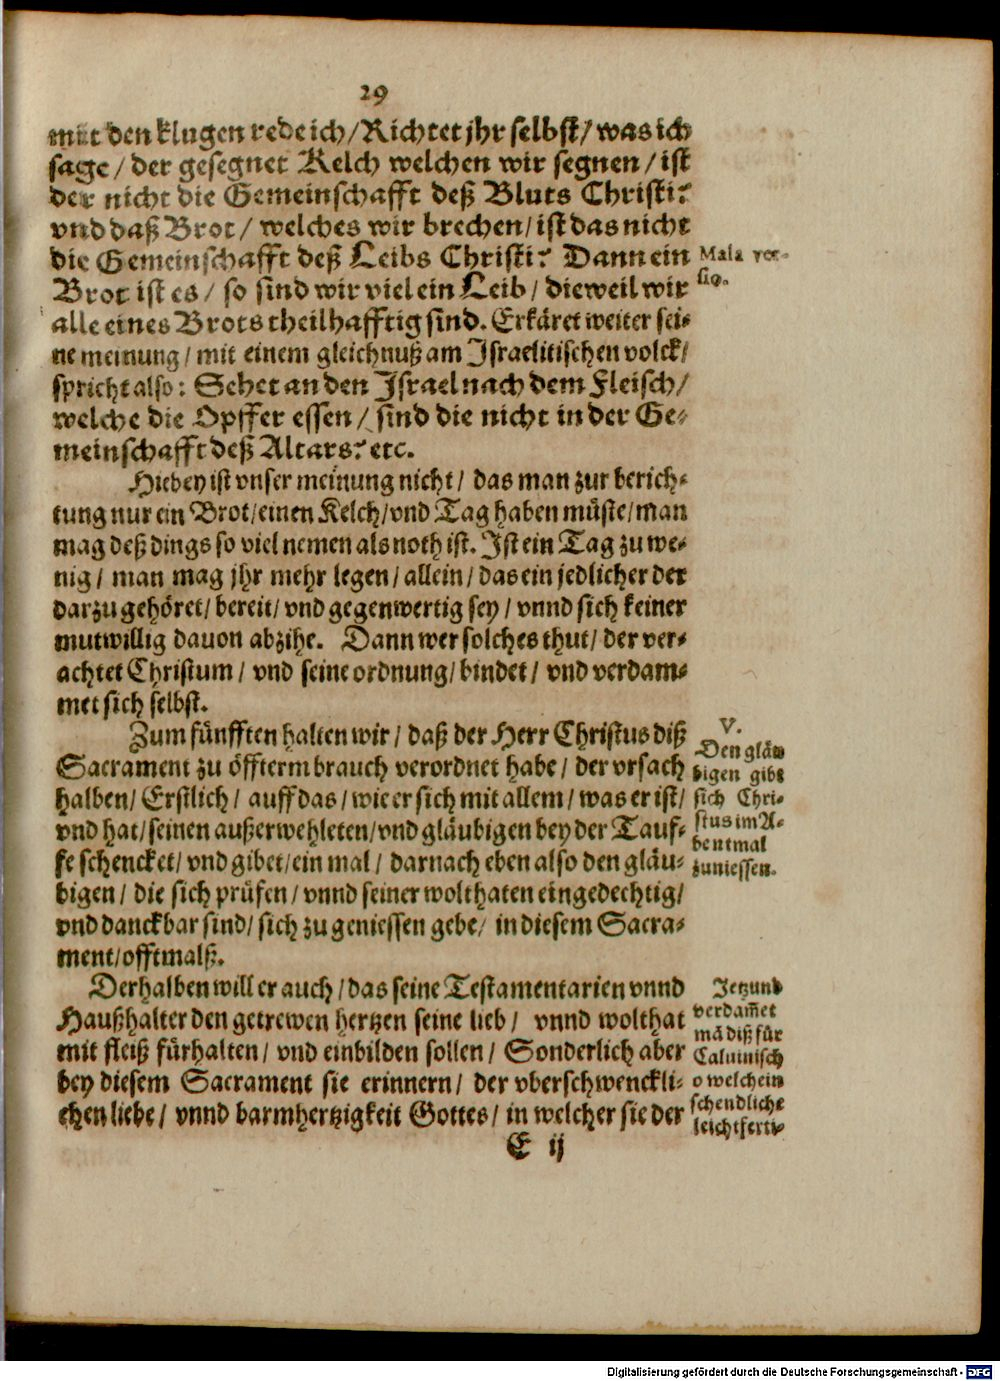 29
mit den klugen rede ich/Richtet jhr selbst/was ich
sage/der gesegnet Kelch welchen wir segnen/ist
der nicht die Gemeinschafft deß Bluts Christi?
vnd daß Brot/welches wir brechen/ist das nicht
die Gemeinschafft deß Leibs Christi? Dann ein
Brot ist es/so sind wir viel ein Leib/dieweil wir
alle eines Brots theilhafftig sind. Erkäret weiter sei-
ne meinung/mit einem gleichnuß am Jsraelitischen volck/
spricht also: Sehet an den Jsrael nach dem Fleisch/
welche die Opffer essen/sind die nicht in der Ge-
meinschafft deß Altars? etc.
Hiebey ist vnser meinung nicht/das man zur berich-
tung nur ein Brot/einen Kelch/vnd Tag haben müste/man
mag deß dings so viel nemen als noth ist. Jst ein Tag zu we-
nig/man mag jhr mehr legen/allein/das ein jedlicher der
darzu gehöret/bereit/vnd gegenwertig sey/vnnd sich keiner
mutwillig dauon abzihe. Dann wer solches thut/der ver-
achtet Christum/vnd seine ordnung/bindet/vnd verdam-
met sich selbst.
Zum fünfften halten wir/daß der Herr Christus diß
Sacrament zu öffterm brauch verordnet habe/der vrsach
halben/Erstlich/auff das/wie er sich mit allem/was er ist/
vnd hat/seinen außerwehleten/vnd gläubigen bey der Tauf-
fe schencket/vnd gibet/ein mal/darnach eben also den gläu-
bigen/die sich prüfen/vnnd seiner wolthaten eingedechtig/
vnd danckbar sind/sich zu geniessen gebe/in diesem Sacra-
ment/offtmalß.
Derhalben will er auch/das seine Testamentarien vnnd
Haußhalter den getrewen hertzen seine lieb/vnnd wolthat
mit fleiß fürhalten/vnd einbilden sollen/Sonderlich aber
bey diesem Sacrament sie erinnern/der vberschwenckli-
chen liebe/vnnd barmhertzigkeit Gottes/in welcher sie der
E ij
Mala ver-
sio.
V.
Den gläu
bigen gibt
sich Chri-
stus im A-
bentmal
zuniessen.
Jetzund
verdam̅et
mā diß für
Caluinisch
o welch ein
schendliche
leichtferti-
Digitalisierung gefördert durch die Deutsche Forschungsgemeinschaft - DFG